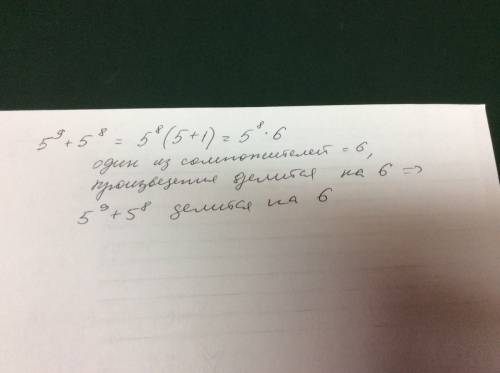 5⁹+5⁸ = 5⁸(5+1) = 5⁸·6
один из сомножителей = 6,
произведение делится на 6 =>
5⁹+5⁸ делится на 6